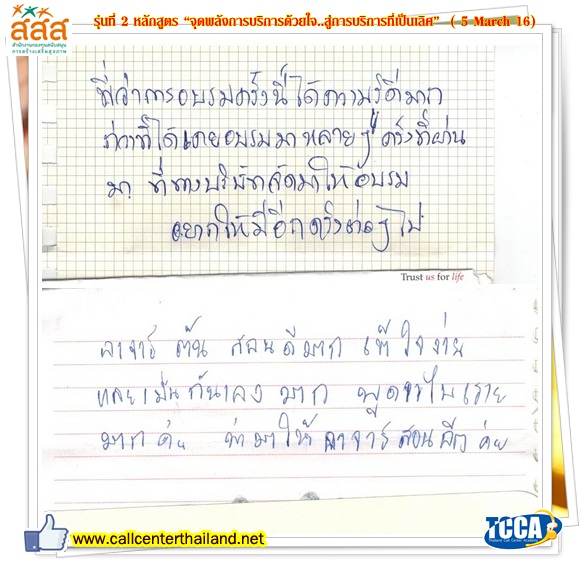 สสส
สำนักงานกองทุนสนับสนุน
การสร้างเสริมสุขภาพ
รุ่นที่ 2 หลักสูตร “จุดพลังการบริการด้วยใจ..สู่การบริการที่เป็นเลิศ” ( 5 March 16)
ที่ว่าการอบรมครั้งนี้ได้ความรู้ดีมาก
กว่าที่ได้เคยอบรมมาหลายๆ ครั้งที่ผ่าน
มา ที่ทางบริษัทจัดมาให้อบรม
อยากให้มีอีกครั้งต่อๆ ไป
Trust us for life
อาจารย์ ต้น สอนดีมาก เข้าใจง่าย
และเป็นกันเอง มาก พูดจาไพเราะ
มากค่ะ ให้ อาจารย์สอนอีก ค่ะ
www.callcenterthailand.net
TCCA
Thailand Call Center Academy